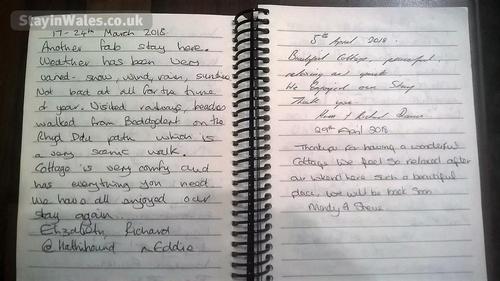 StayinWales.co.uk
17-24th March 2018
Another fab stay here.
Weather has been very
varied - snow, wind, rain, sunshine
Not bad at all for the time
of year. Visited railways, beaches
walked from Beddgelert on the
Rhyd Ddu path which is
a very scenic walk.
Cottage is very comfy and
has everything you need
We have all enjoyed our
stay again.
Elizabeth Richard
& Eddie
5th April 2018.
Beautiful Cottage, peaceful,
relaxing and quiet
We enjoyed our Stay
Thank you
& Richard
29th April 2018
Thankyou for having a wonderful
Cottage we feel so relaxed after
our wkend here such a beautiful
place, we will be back soon
Mandy & Steve